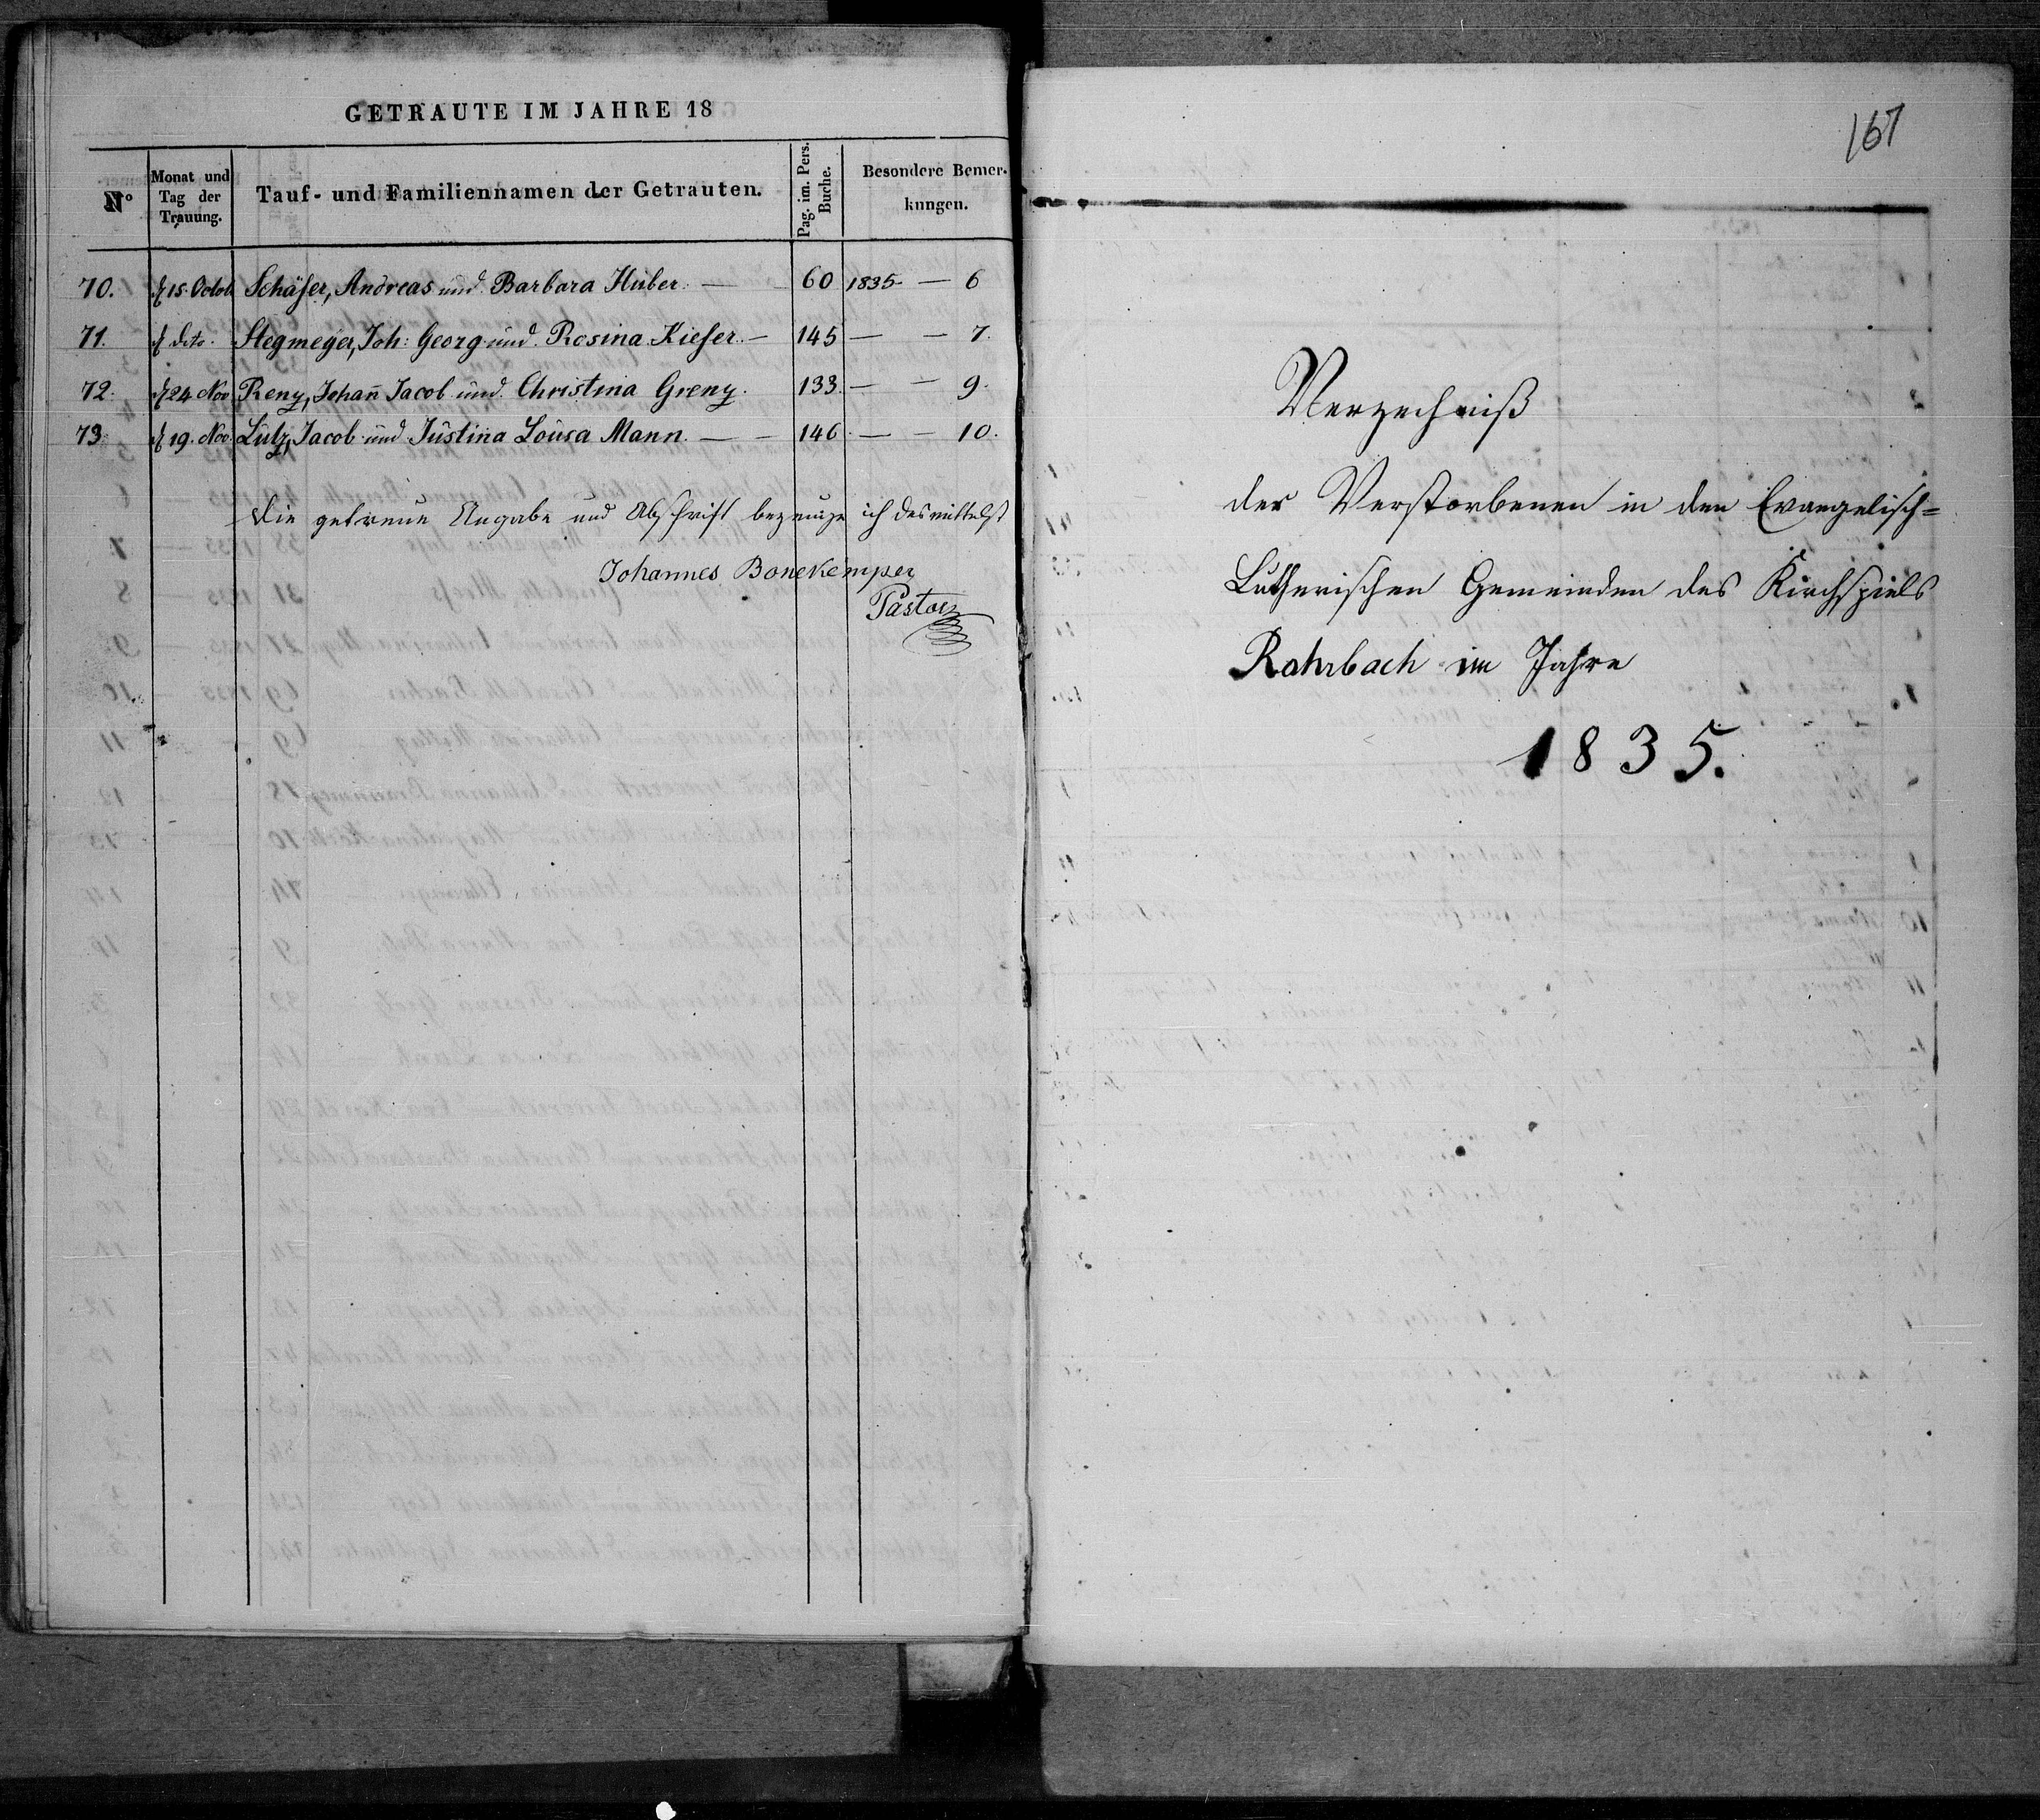 GETRAUTE IM JAHRE 18
N° Monat und Tag der Trauung. Tauf- und Familiennamen der Getrauten. Pag. im. Pers. Buche. Besondere Bemerkungen.
70. 15. Octob Schäfer, Andreas und Barbara Huber. — 60 1835 — 6
71. dito. Stegmeyer, Joh: Georg und Rosina Kiefer. — 145 — — 7.
72. 24 Nov Renz, Johañ Jacob und Christina Grenz. 133. — — 9.
73. 19. Nov. Lutz, Jacob und Justina Lousa Mann. — — 146. — — 10.
Die getreue Angabe und Abschrift bezeuge ich desmittelst
Johannes Bonekemper
Pastor
167
Verzechniß
der Verstorbenen in den Evangelisch=
Lutherischen Gemeinden des Kirchspiels
Rohrbach im Jahre
1835.